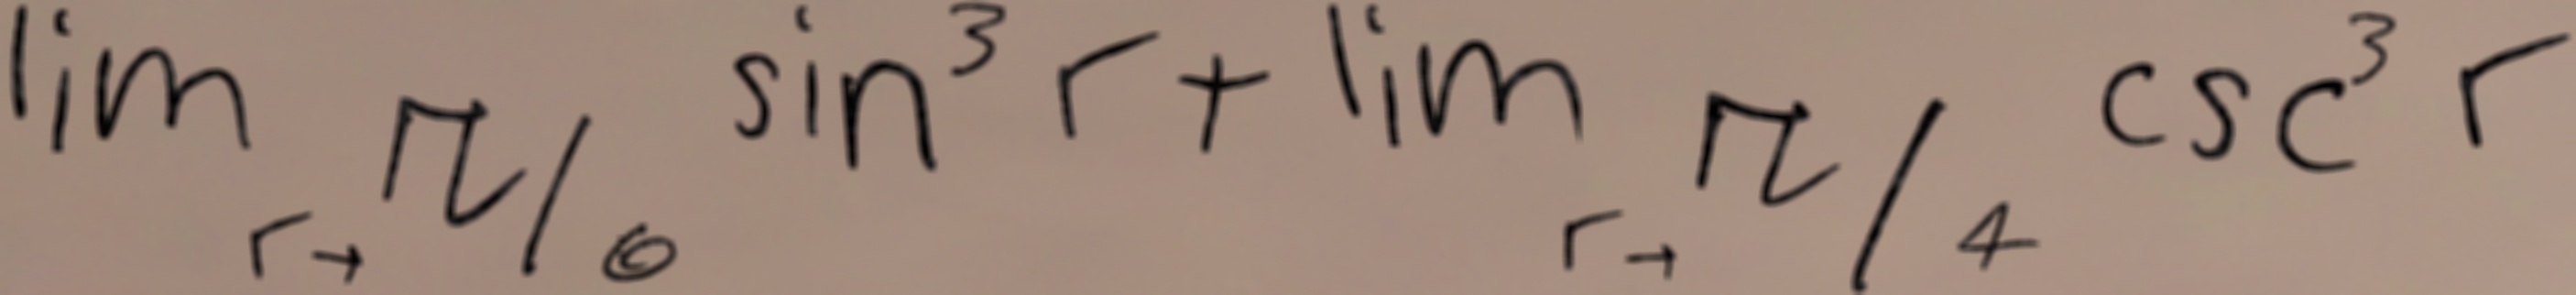 \lim_{r \to \pi/6} \sin^3 r + \lim_{r \to \pi/4} \csc^3 r